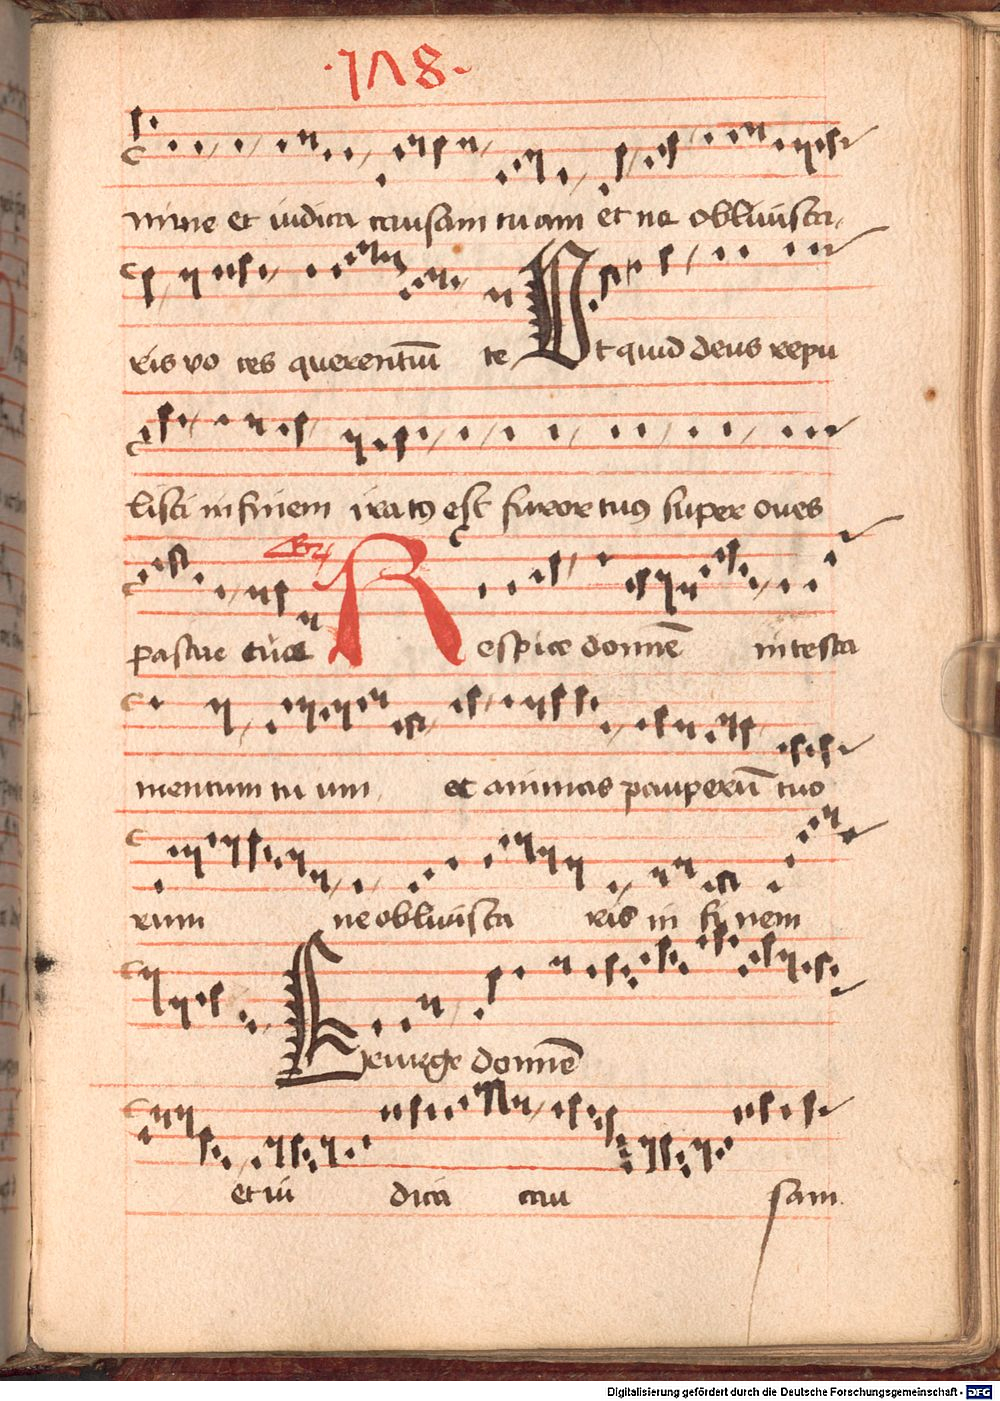 ·178·
mine et iudica causam tuam et ne obliuisca-
ris vo ces querentiū te Ut quid deus repu
listi in finem iratꝯ est furor tuꝯ super oues
pascue tue Respice domnē in testa
mentum tu um et animas pauperū tuo
rum ne obliuisca ris in fi nem
Exurge domnē
et iu dica cau sam
Digitalisierung gefördert durch die Deutsche Forschungsgemeinschaft - DFG